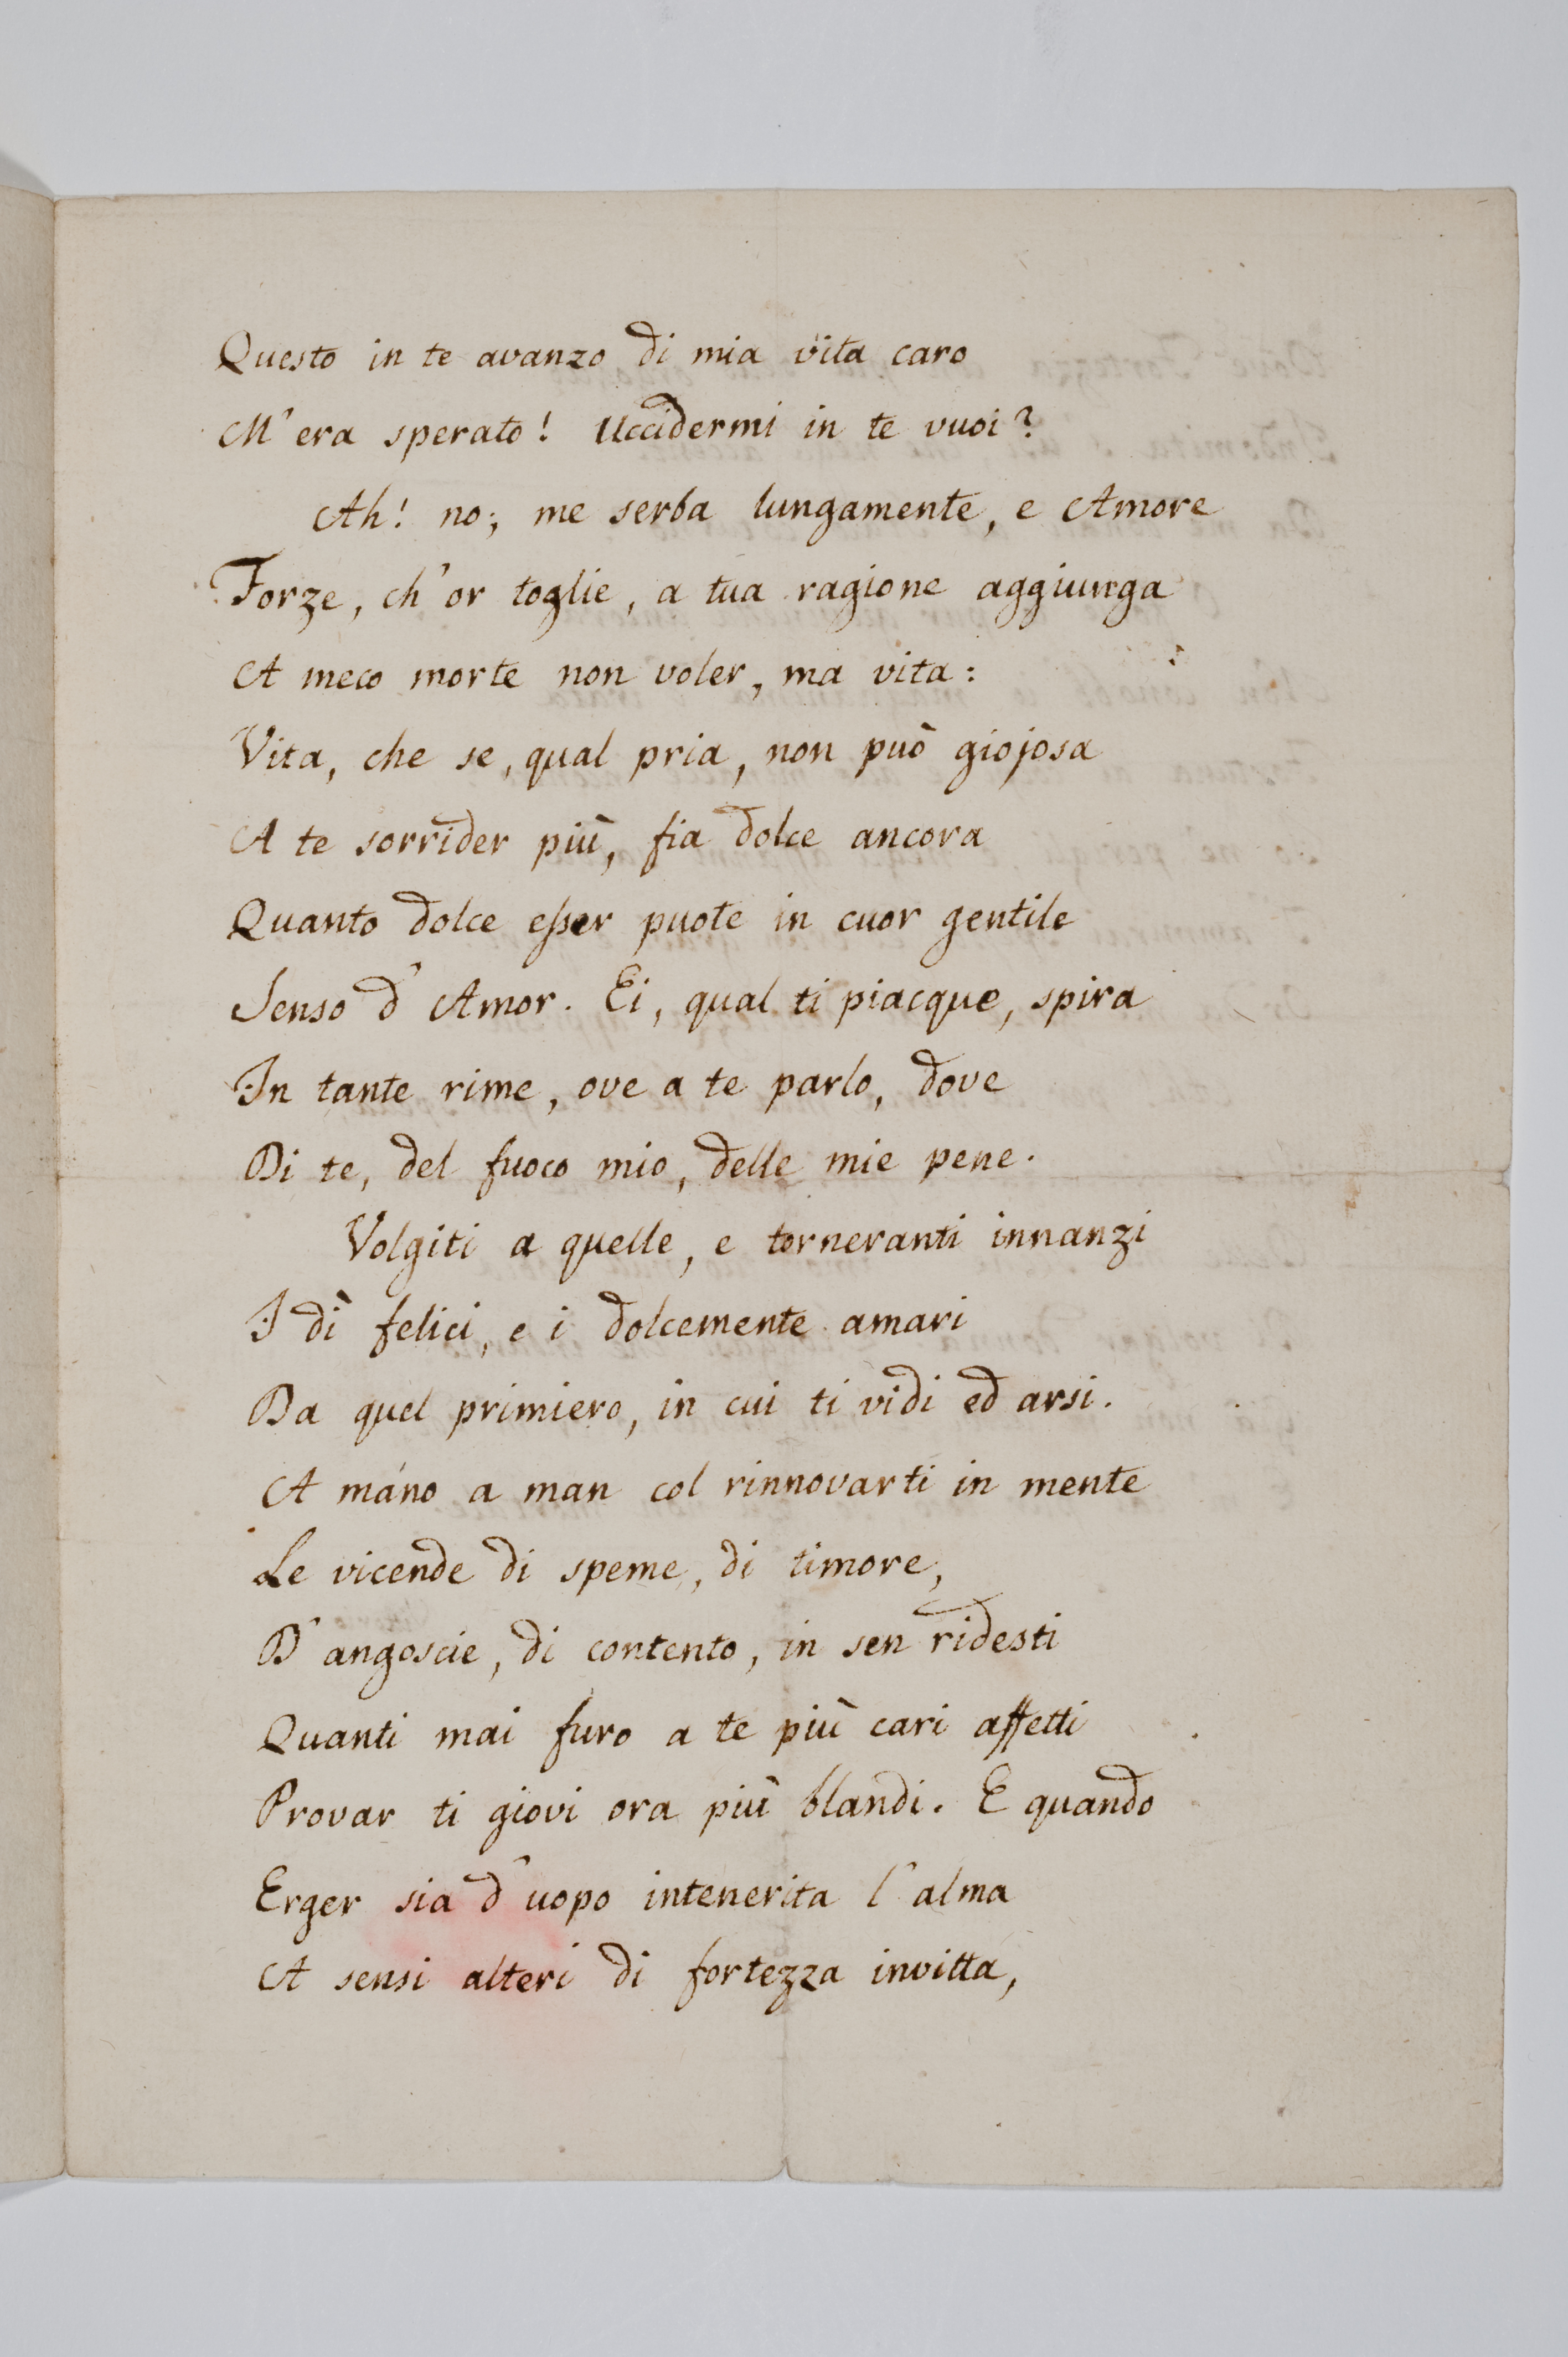 Questo in te avanzo di mia vita caro
M'era sperato! Uccidermi in te vuoi?
Ah! no; me serba lungamente, e Amore
Forze, ch'or toglie, a tua ragione aggiunga
A meco morte non voler, ma vita:
Vita, che se, qual pria, non può giojosa
A te sorrider più, fia dolce ancora
Quanto dolce eſser puote in cuor gentile
Senso d'Amor. Ei, qual ti piacque, spira
In tante rime, ove a te parlo, dove
Di te, del fuoco mio, delle mie pene.
Volgiti a quelle, e torneranti innanzi
I dì felici, e i dolcemente amari
Da quel primiero, in cui ti vidi ed arsi.
A máno a man col rinnovarti in mente
Le vicende di speme, di timore,
D'angoscie, di contento, in sen ridesti
Quanti mai furo a te più cari affetti
Provar ti giovi ora più blandi. E quando
Erger sia d'uopo intenerita l'alma
A sensi alteri di fortezza invitta,